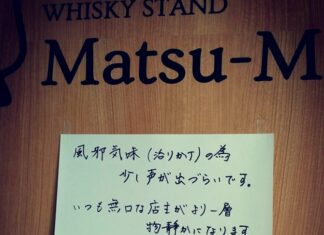 WHISKY STAND
Matsu-M
風邪気味(治りかけ)の為
少し声が出づらいです。
いつも無口な店主がより一層
物静かになります